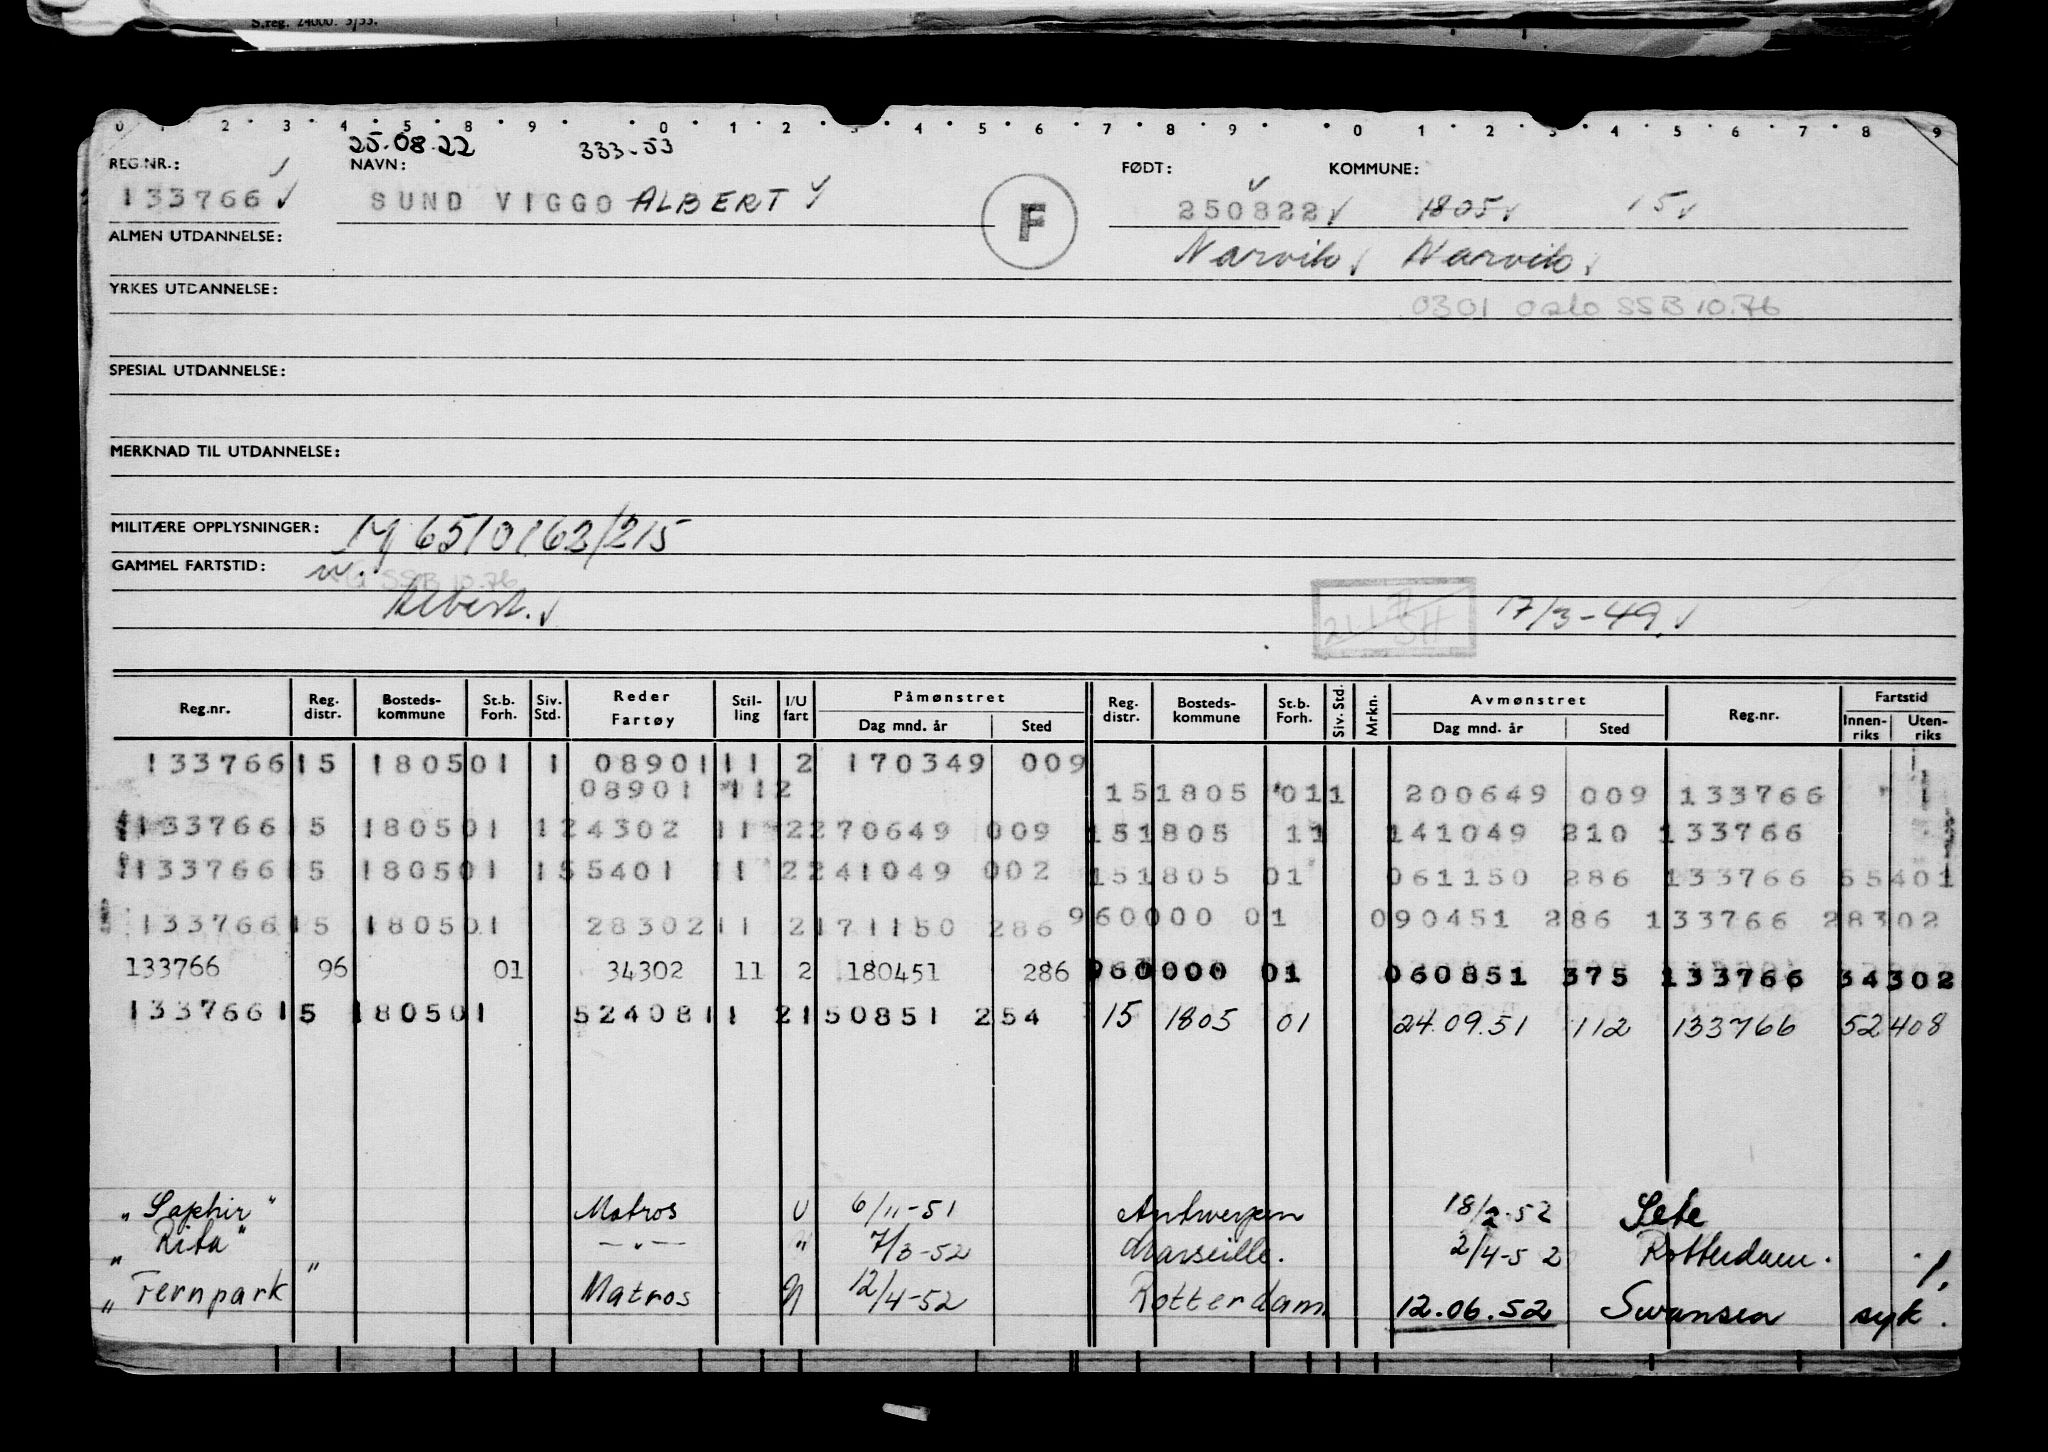 S.reg. 24000. 3/53.
0 1 2 3 4 5 8 9 0 1 2 3 4 5 6 7 8 9 0 1 2 3 4 5 6 7 8 9
25.08.22 333-53
REG.NR.: NAVN: FØDT: KOMMUNE:
133766 SUND VIGGO ALBERT F 250822 1805 15
ALMEN UTDANNELSE: Narvik Narvik
YRKES UTDANNELSE: 0301 Oslo SSB 10.76
SPESIAL UTDANNELSE:
MERKNAD TIL UTDANNELSE:
MILITÆRE OPPLYSNINGER: M 6510163/215
GAMMEL FARTSTID: SSB 10.76
Albert. 17/3-49.
Reg.nr. Reg. distr. Bosteds-kommune St.b. Forh. Siv. Std. Reder Fartøy Stil-ling I/U fart Påmønstret Dag mnd. år Sted Reg. distr. Bosteds-kommune St.b. Forh. Siv. Std. Mrkn. Avmønstret Dag mnd. år Sted Reg.nr. Fartstid Innen-riks Uten-riks
133766 15 1805 01 1 08901 11 2 170349 009
08901 112 151805 011 200649 009 133766
133766 15 1805 01 1 24302 11 2 270649 009 151805 11 141049 210 133766
133766 15 1805 01 1 55401 11 2 241049 002 151805 01 061150 286 133766 55401
133766 15 1805 01 28302 11 2 171150 286 960000 01 090451 286 133766 28302
133766 96 01 34302 11 2 180451 286 960000 01 060851 375 133766 34302
133766 15 1805 01 52408 11 2 150851 254 15 1805 01 24.09.51 112 133766 52408
"Saphir" Matros U 6/11-51 Antwerpen 18/2-52 Sete
"Rita" -"- " 7/3-52 Marseille. 2/4-52 Rotterdam.
"Fernpark" Matros U 12/4-52 Rotterdam 12.06.52 Swansea syk.